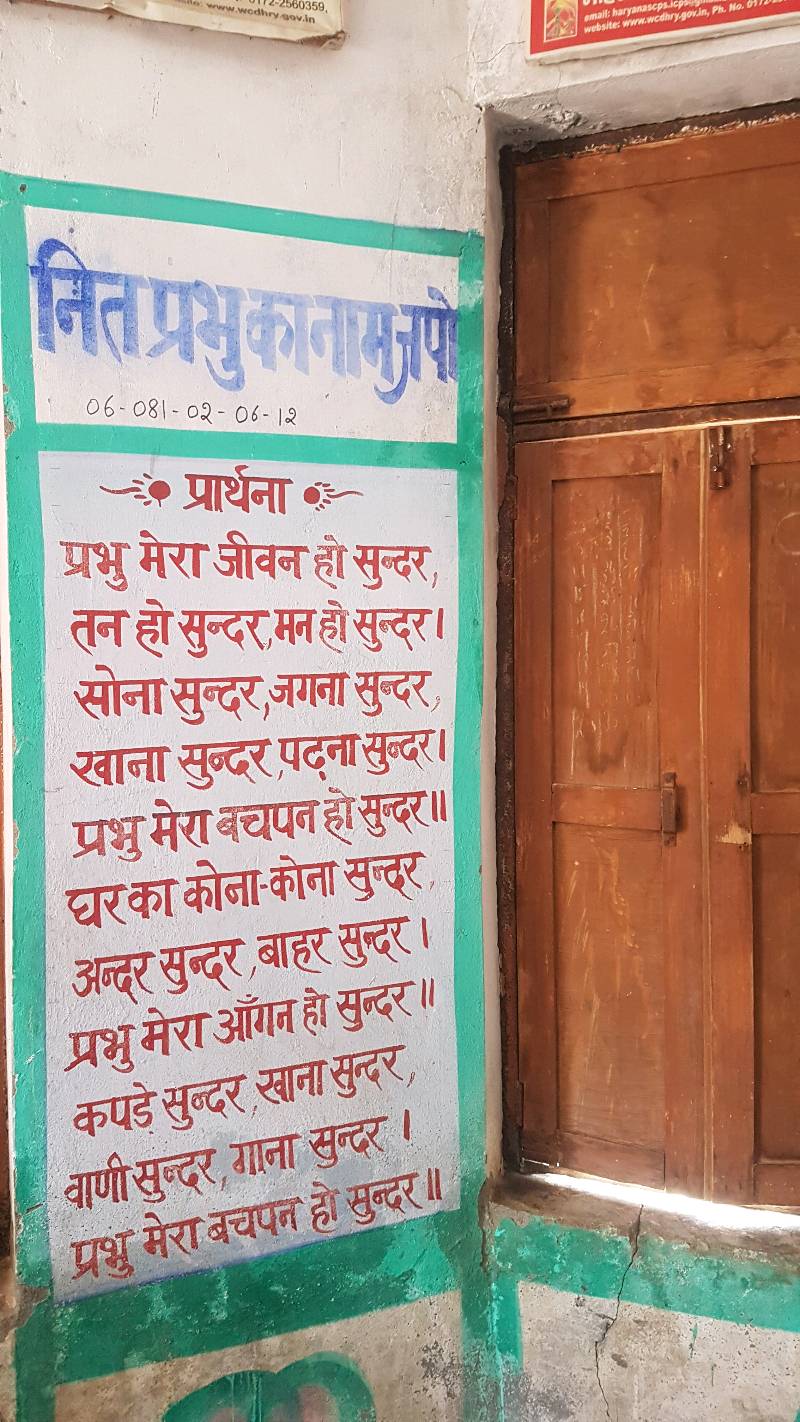 0172-2560359,
www.wcdhry.gov.in
website: www.wcdhry.gov.in, Ph. No. 0172-
नित प्रभु का नाम जपो
06-081-02-06-12
प्रार्थना
प्रभु मेरा जीवन हो सुन्दर,
तन हो सुन्दर, मन हो सुन्दर।
सोना सुन्दर, जगना सुन्दर,
खाना सुन्दर, पढ़ना सुन्दर।
प्रभु मेरा बचपन हो सुन्दर॥
घर का कोना-कोना सुन्दर,
अन्दर सुन्दर, बाहर सुन्दर।
प्रभु मेरा आँगन हो सुन्दर॥
कपड़े सुन्दर, खाना सुन्दर,
वाणी सुन्दर, गाना सुन्दर।
प्रभु मेरा बचपन हो सुन्दर॥